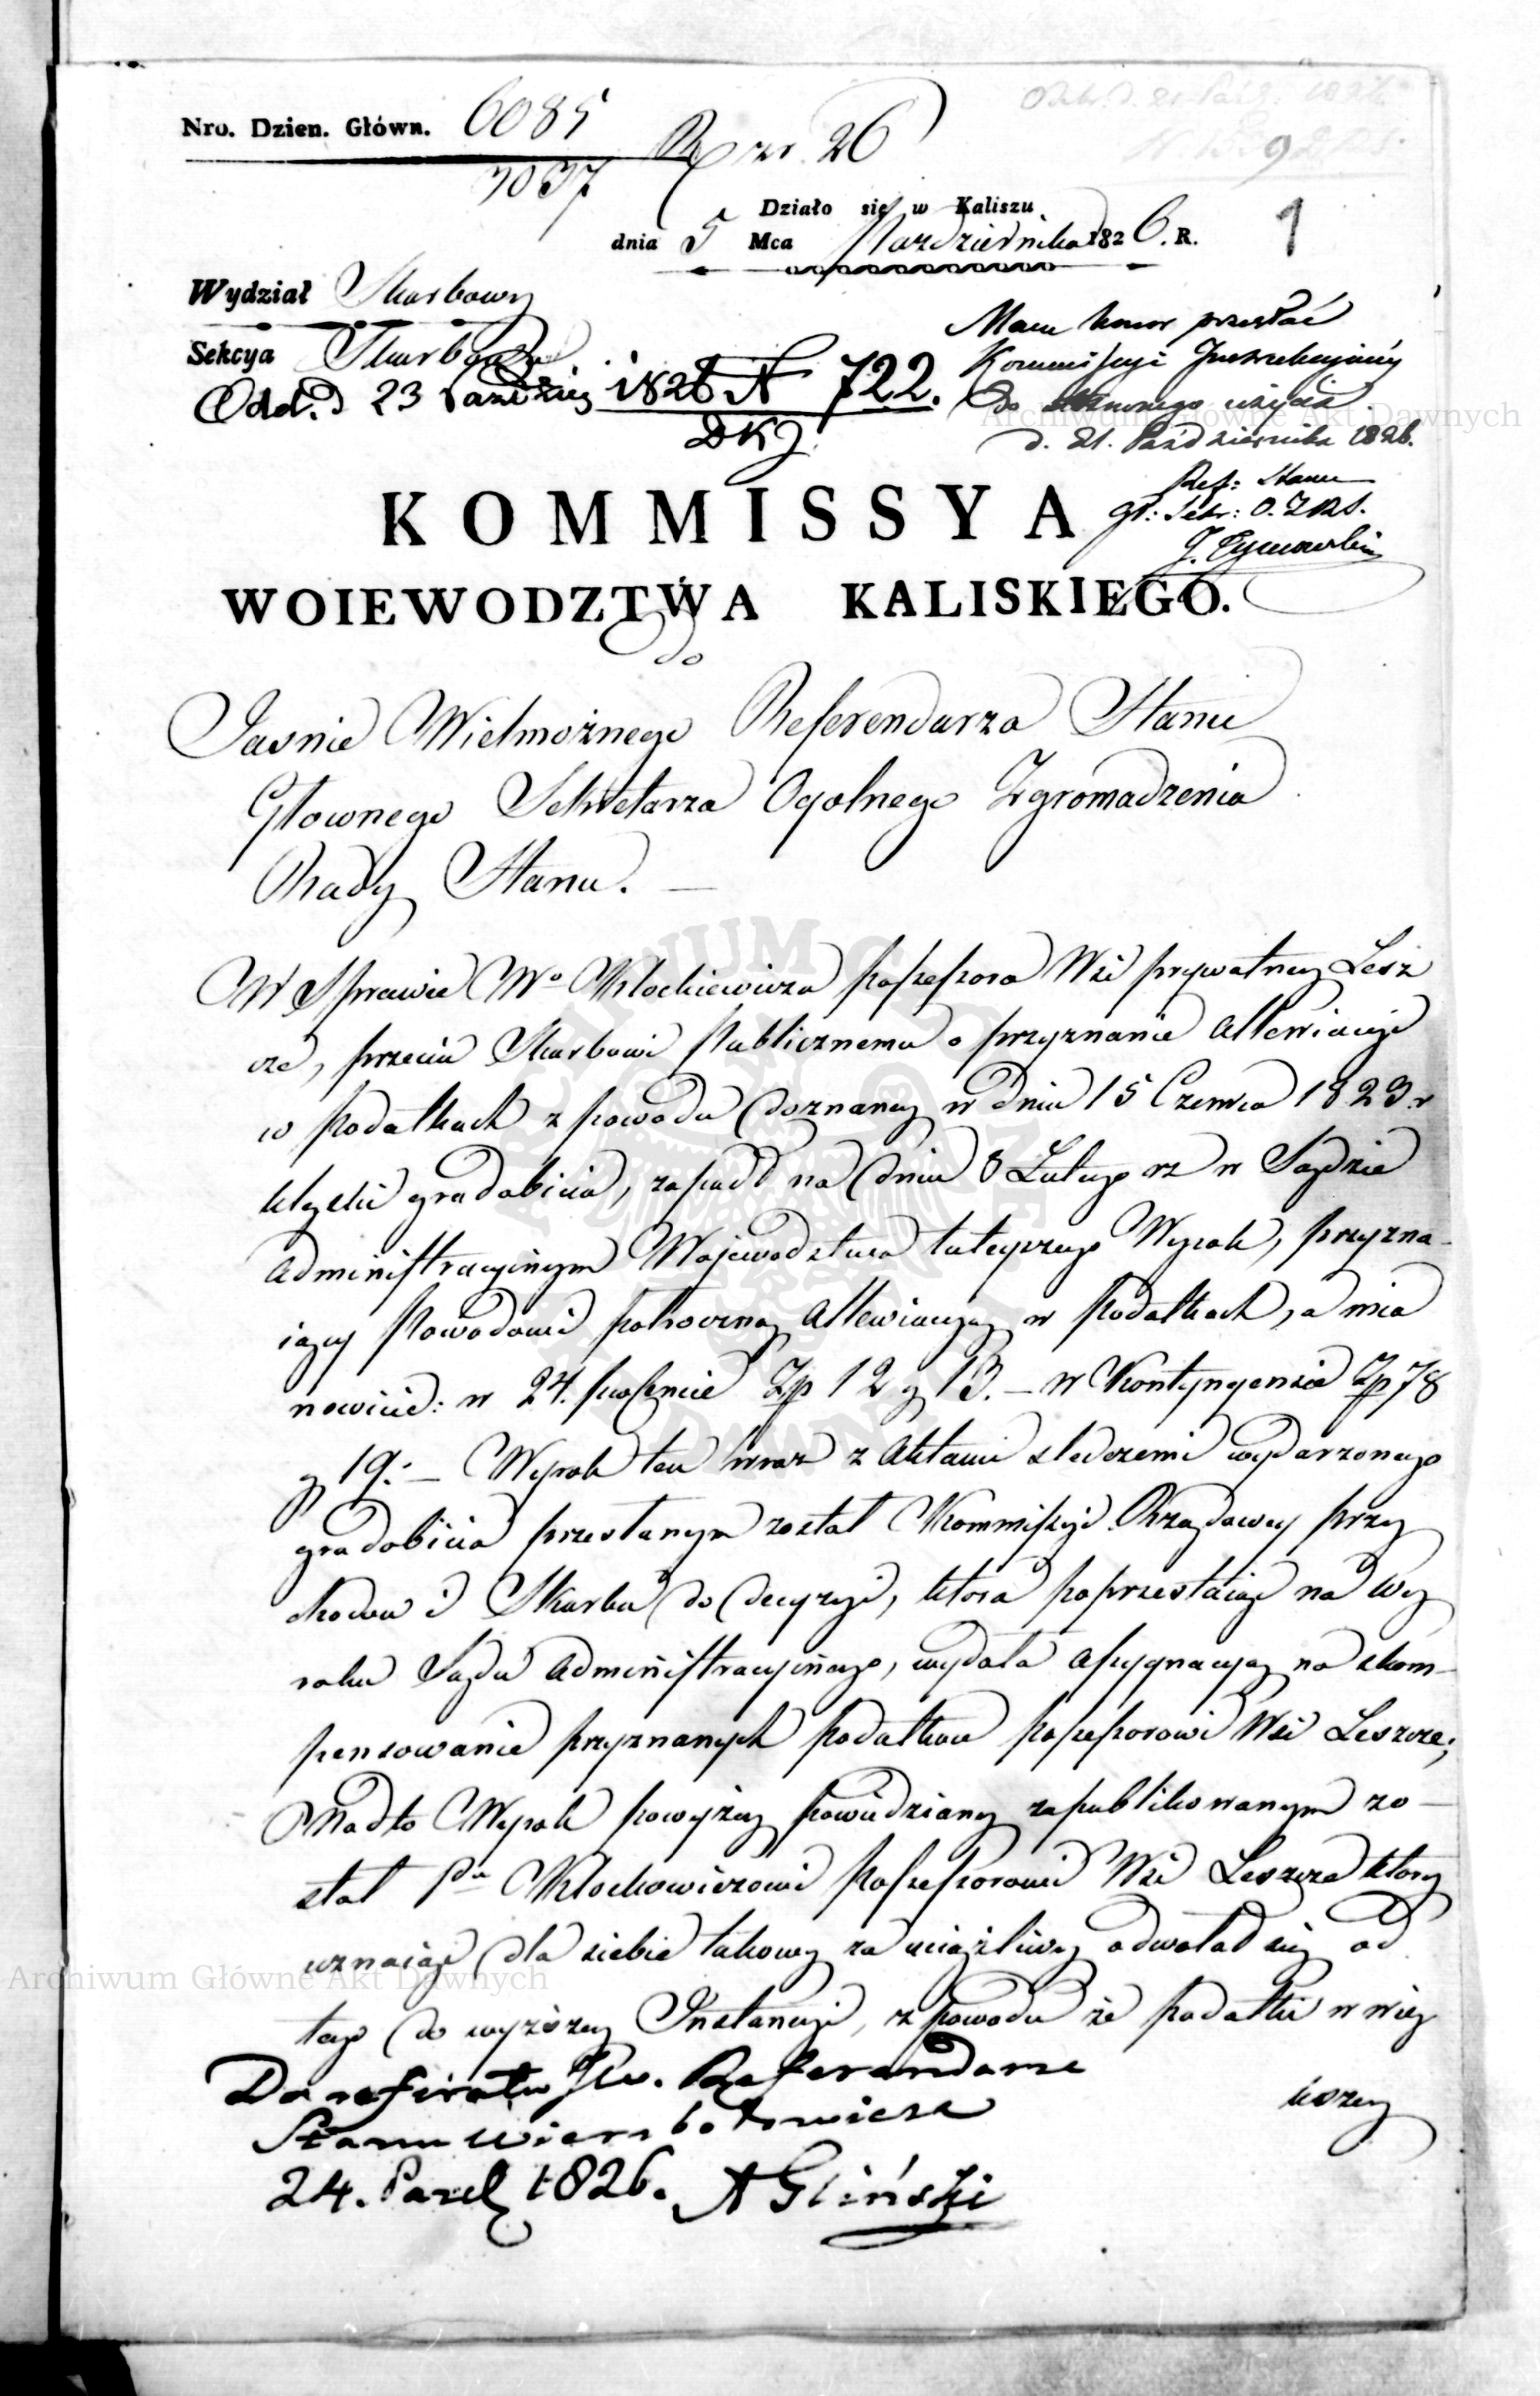 Nro. Dzien. Główn. 6085
7037
R zr 26
9
1
Działo się w Kaliszu
dnia 5 Mca Pazdziernika 1826. R.
Wydział Skarbowy
Sekcya Skarbowa
Odd. d 23 Paździer 1826 N 722.
DKJ
Mam honor przesłać
Kommissyi Instrukcyjney
do użycia
d. 21. Października 1826.
Ref: Stanu
Gł: Sekr: O. Z. R. S.
J. Tymowski
KOMMISSYA
WOIEWODZTWA KALISKIEGO.
do
Jasnie Wielmożnego Referendarza Stanu
Głownego Sekretarza Ogolnego Zgromadzenia
Rady Stanu. —
W Sprawie Wo Kłockiewicza possessora Wsi prywatney Lesz
cze, przeciw Skarbowi Publicznemu o przyznanie allewiacyi
w podatkach z powodu doznaney w dniu 15 Czerwca 1823 r
klęski gradobicia, zapadł na dniu 8 Lutego rz w Sądzie
Administracyinym Wojewodztwa tuteyszego Wyrok, przyzna-
iący Powodowi połroczną allewiacyą w podatkach, a mia
nowicie: w 24. groszenie Zp 12 g 13. — w Kontyngensie Zp 78
g 19. — Wyrok ten wraz z aktami sledczemi wydarzonego
gradobicia przesłanym został Kommissyi Rządowey przy
chodow i Skarbu do decyzyi, ktora poprzestaiąc na Wy
roku Sądu Administracyinego, wydała assygnacyą na skom-
pensowanie przyznanych podatkow possessorowi Wsi Leszcze;
Nadto Wyrok powyżey powiedziany zapublikowanym zo—
stał Pu Kłockowiczowi possessorowi Wsi Leszcze ktory
uznaiąc dla siebie takowy za uciążliwy odwołał się od
tego do wyższey Instancyi, z powodu że podatki w więk
kszey
Do referatu JW. Referendarza
Stanu Wierzbołowicza
24. Pazd 1826. A Gliński
Archiwum Główne Akt Dawnych
Archiwum Główne Akt Dawnych